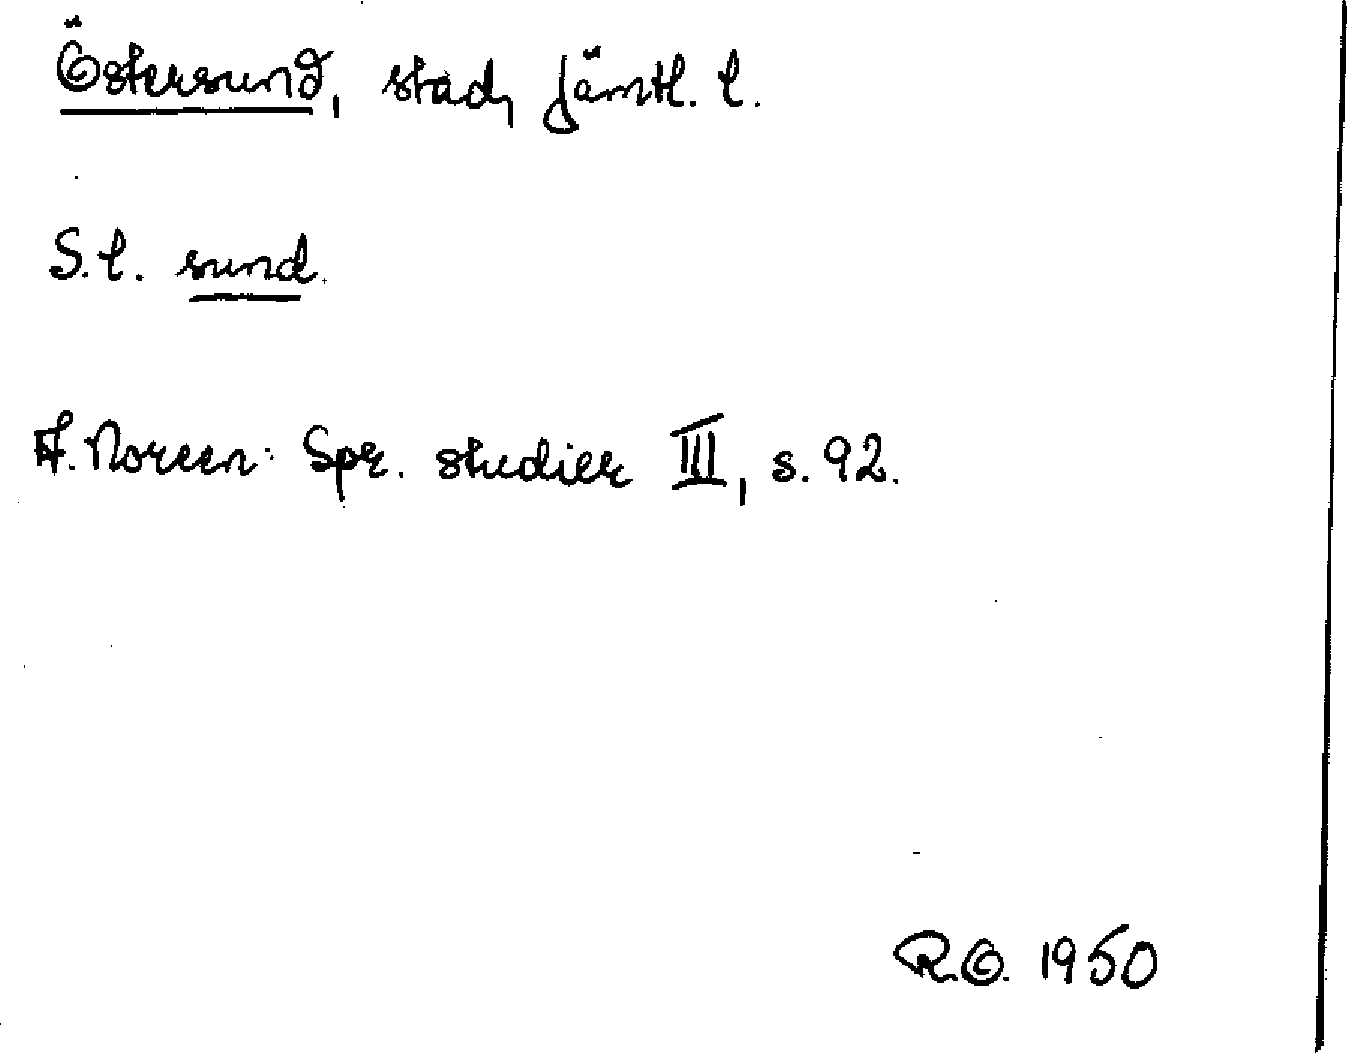 Östersund, stad, Jämtl. l.
S.l. sund.
A. Noreen: Spr. studier III, s. 92.
R.O. 1950